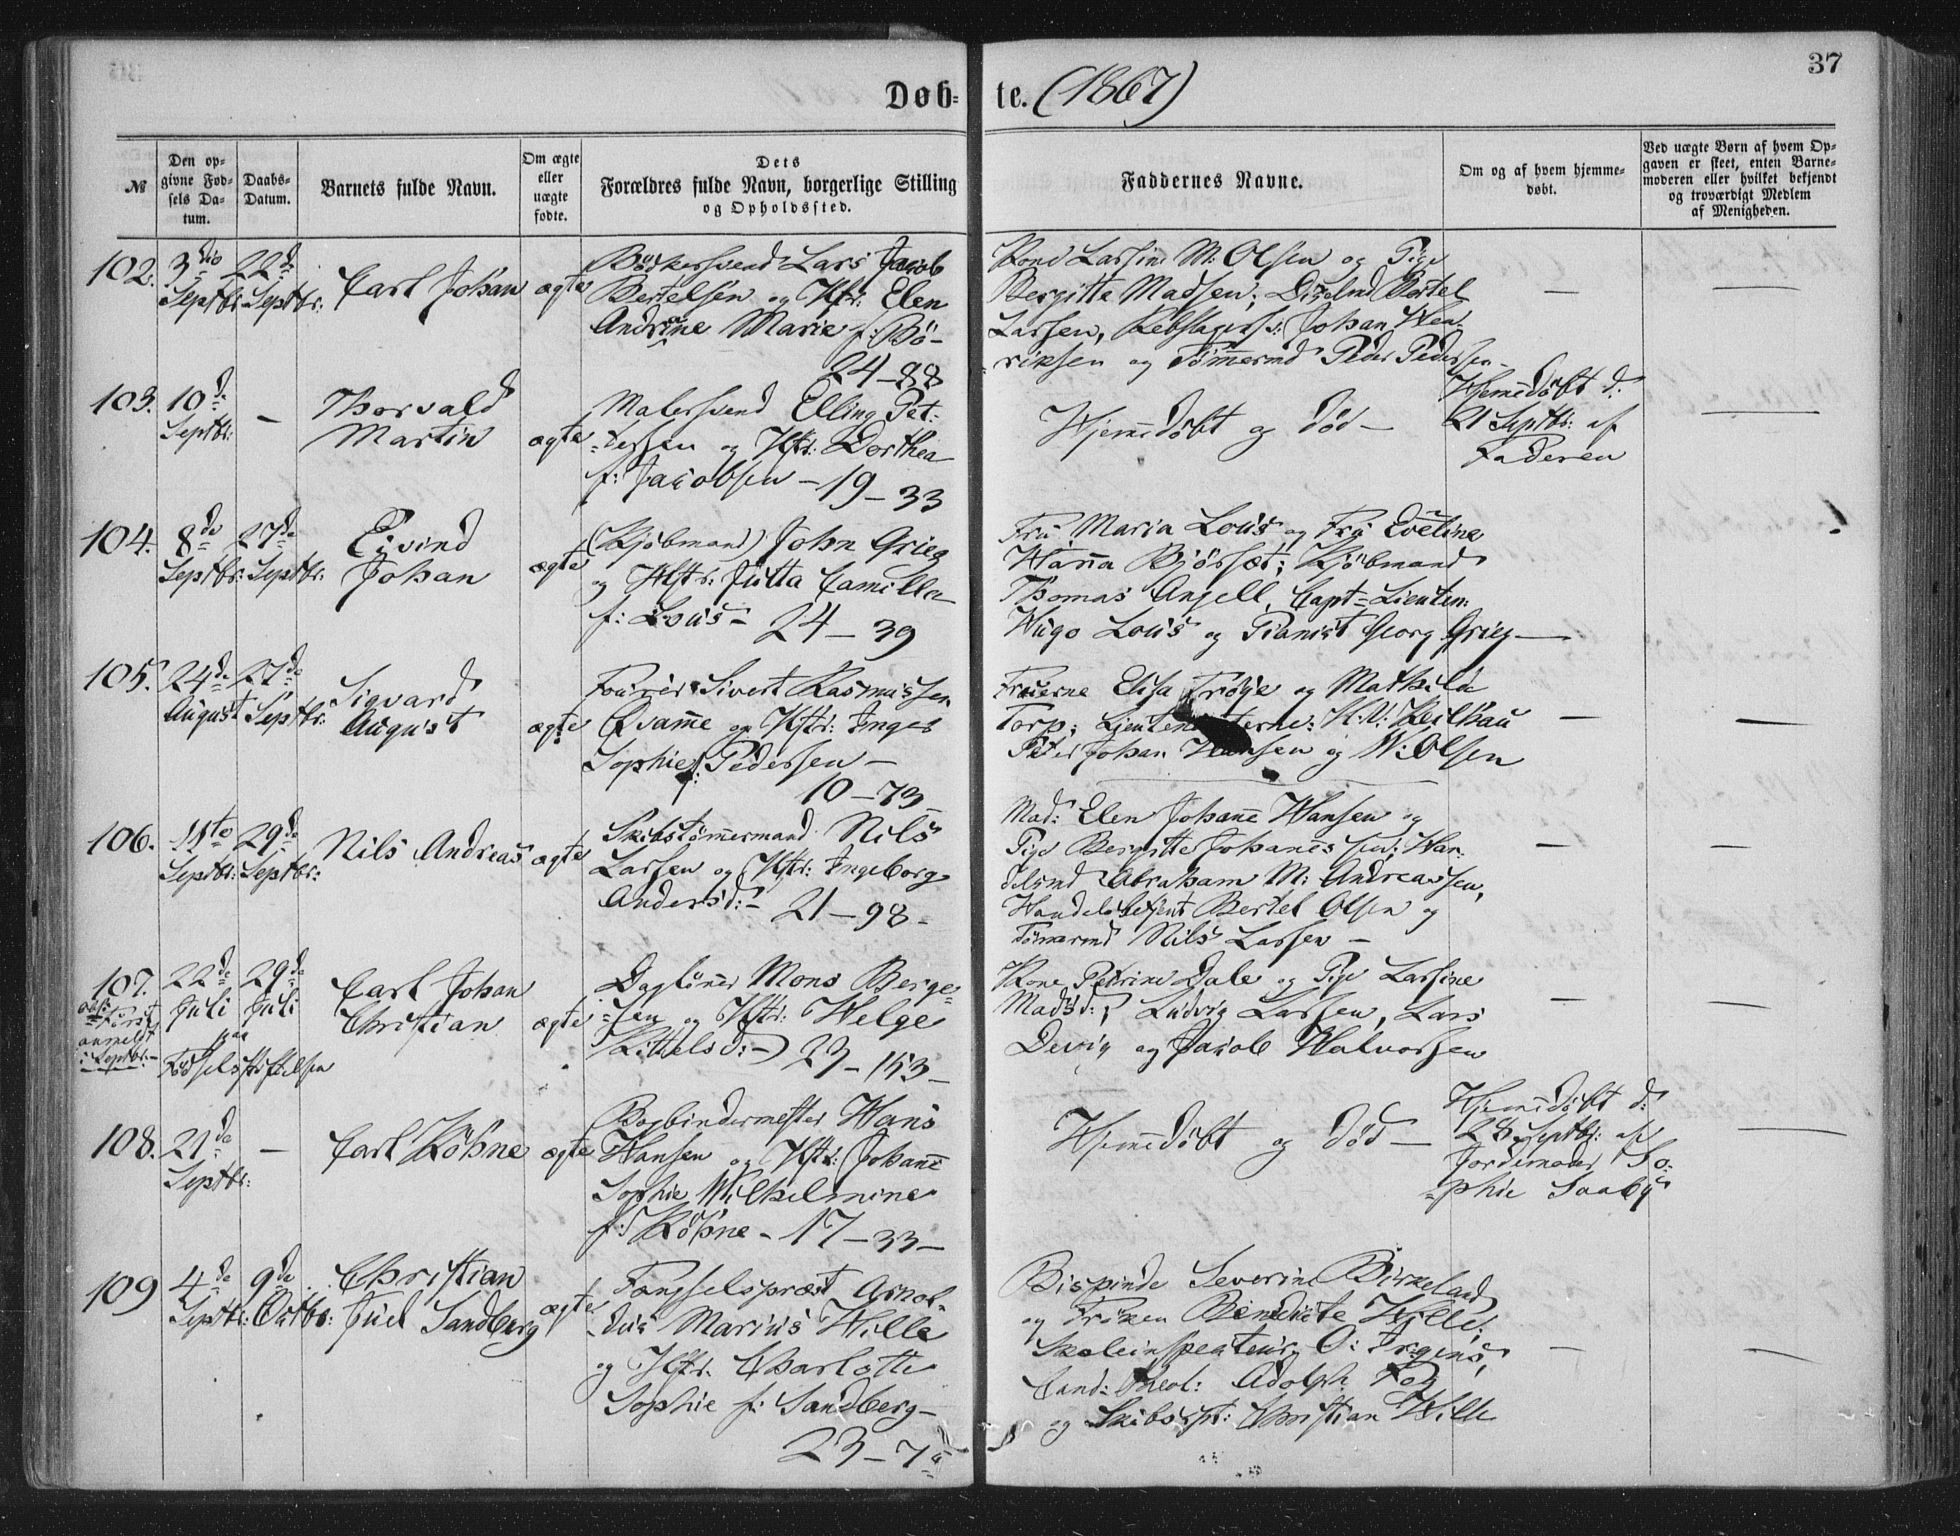 37
Døb= te. (1867)
№
Den op=
givne Fød=
sels Da=
tum.
Daabs=
Datum.
Barnets fulde Navn.
Om ægte
eller
uægte
fødte.
Dets
Forældres fulde Navn, borgerlige Stilling
og Opholdssted.
Faddernes Navne.
Om og af hvem hjemme=
døbt.
Ved uægte Børn af hvem Op=
gaven er skeet, enten Barne=
moderen eller hvilket bekjendt
og troværdigt Medlem
af Menigheden.
102.
3die
Septbr:
22de
Septbr:
Carl Johan
ægte
Bødkersvend Lars Jacob
Bertelsen og Hstr: Elen
Andrine Marie f: Bö-
24-88
Kone Larsine M: Olsen og Pige
Bergitte Madsen; Bertel
Larsen, Johan Hen-
riksen og Tømmermd Peder Pedersen
—
—
103.
10de
Septbr:
—
Thorvald
Martin
ægte
Malersvend Elling Pet-
=tersen og Hstr: Dorthea
f: Jacobsen - 19-33
Hjemmedøbt og død —
Hjemmedøbt d:
21 Septbr: af
Faderen
—
104.
8de
Septbr:
27de
Septbr:
Eivind
Johan
ægte
(Kjøbmand) John Grieg
og Hstr: Jutta Camilla
f: Lous - 24-39
Fru Maria Lous og Fru Eveline
Hanna Bjørset; Kjøbmand
Thomas Angell, Capt=Lieuten:
Hugo Lous og Pianist Georg Grieg —
105.
24de
August
27de
Septbr:
Sigvard
August
ægte
Fourer Sivert Rasmussen
Qvamme og Hstr: Inger
Sophie f: Pedersen -
10-73
Fruerne Elisa Frøye og Mathilde
Torp; H: V: Keilhau
Peter Johan Hansen og W: Olsen
—
—
106.
11te
Septbr:
29de
Septbr:
Nils Andreas
ægte
Skibstømmermand Nils
Larsen og Hstr: Ingeborg
Andersd: - 21-98-
Mad: Elen Johanne Hansen og
Pige Bergitte Johannessen; Han-
delsmd Abraham M: Andreassen,
Handelsbetjent Bertel Olsen og
Tømermd Nils Larsen -
—
—
107.
først
anmeldt
i Septbr:
22de
Juli
29de
Juli
paa
Fødselsstiftelsen
Carl Johan
Christian
ægte
Daglönner Mons Berge-
=sen og Hstr: Helge
Kittelsd: - 23-153-
Kone Petrine Dale og Pige Larsine
Madsd:; Ludvig Larsen, Lars
Devig og Jacob Halvorsen
—
—
108.
21de
Septbr:
—
Carl Köhne
ægte
Bogbindermester Hans
Hansen og Hstr: Johanne
Sophie Wilhelmine
f: Köhne - 17-33-
Hjemmedøbt og død —
Hjemmedøbt d:
28 Septbr: af
Jordemoder So-
=phie Saaby
—
109
4de
Septbr:
9de
Octbr:
Christian
Juel Sandberg
ægte
Fængselspræst Arnol-
dus Marius Wille
og Hstr. Charlotte
Sophie f: Sandberg -
23-7
Bispinde Severine Birkeland
og Frøken Benedicte Wille;
Skoleinspecteur O: Irgens,
Cand: theol: Adolph
og Skibscpt: Christian Wille
—
—